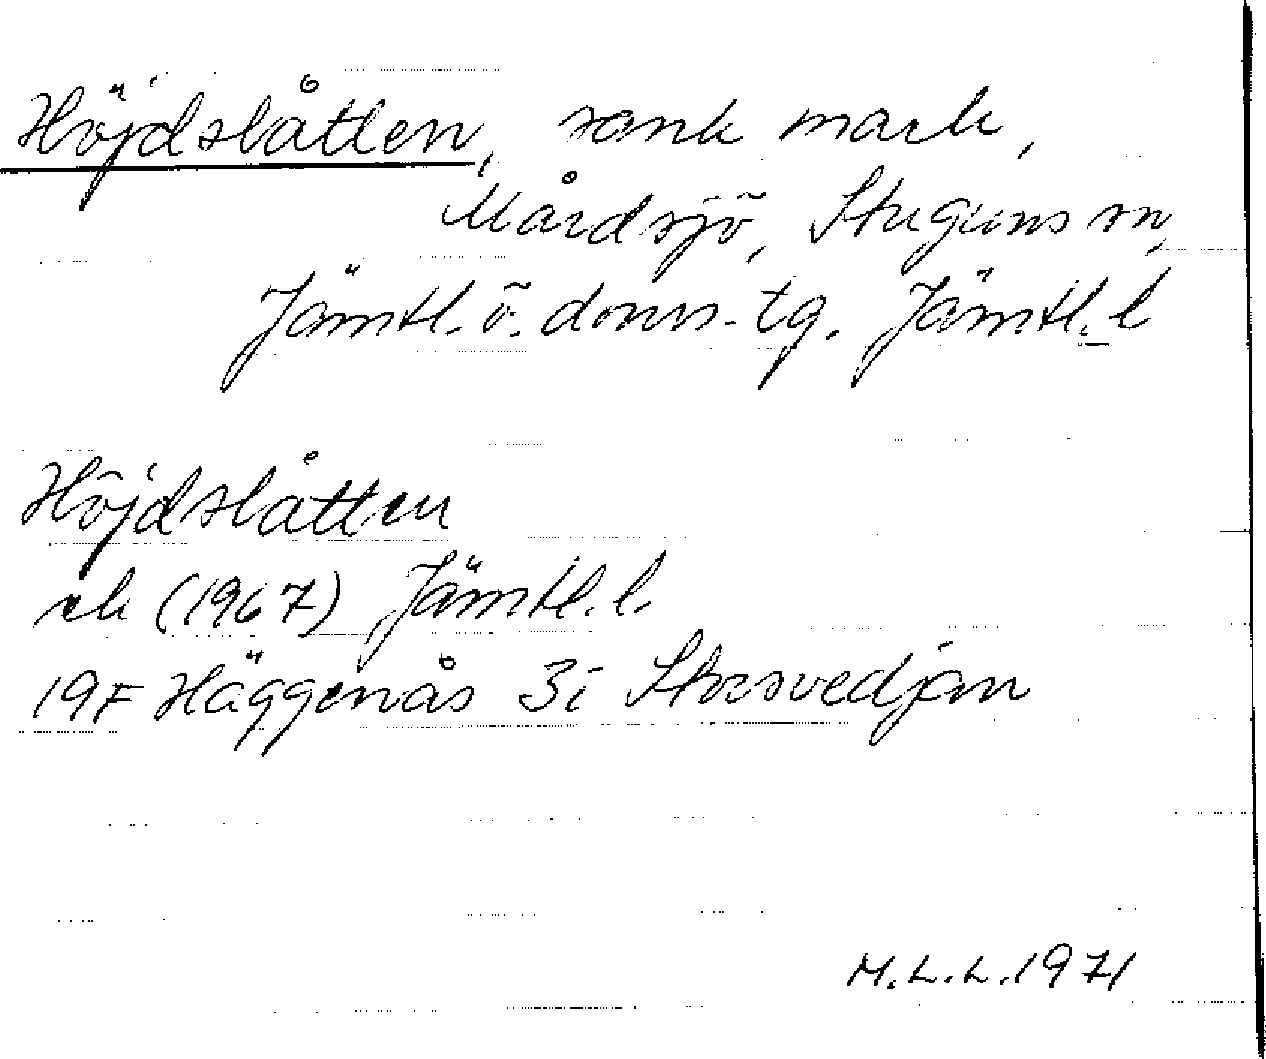 Höjdslåtten, sank mark,
Mårdsjö, Stuguns sn,
Jämtl. ö. doms. tg. Jämtl. l
Höjdslåtten
ek (1967) Jämtl. l.
19F Häggenås 3i Storsvedjan
M.L.L. 1971